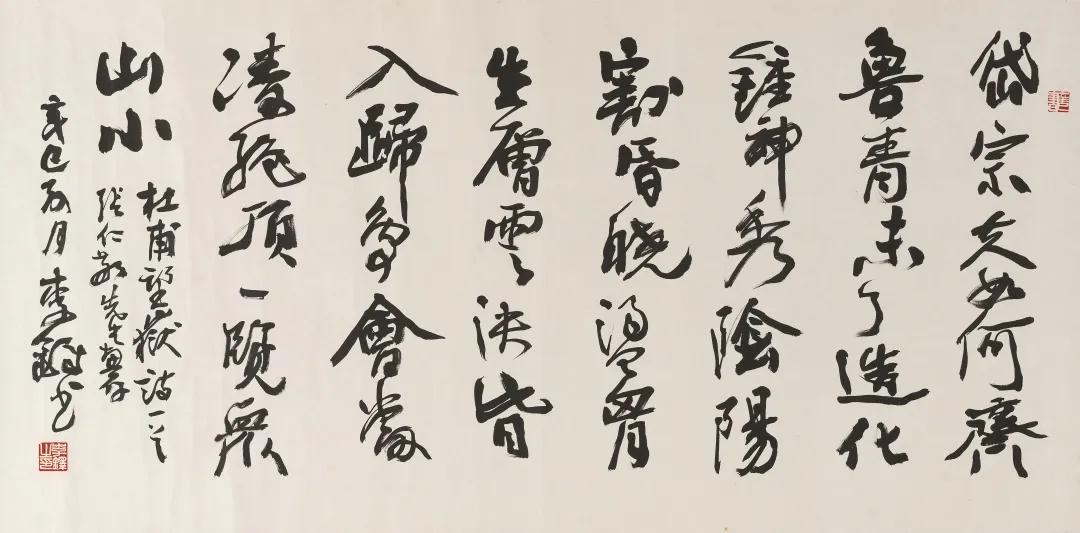 岱宗夫如何齊
魯青未了造化
鍾神秀陰陽
割昏曉盪胷
生層雲決眥
入歸鳥會當
凌絕頂一覽衆
山小
杜甫望嶽詩一首
張仁敬先生
辛巳 月李鐸书